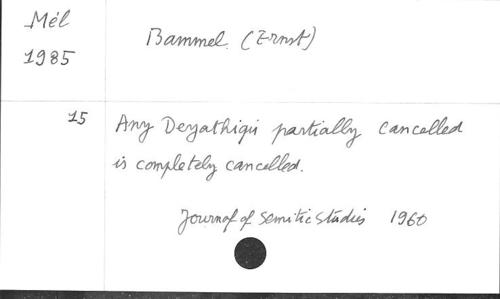 Mél
1985
Bammel. (Ernst)
15
Any Deyathiqi partially cancelled
is completely cancelled.
Journal of Semitic Studies 1960